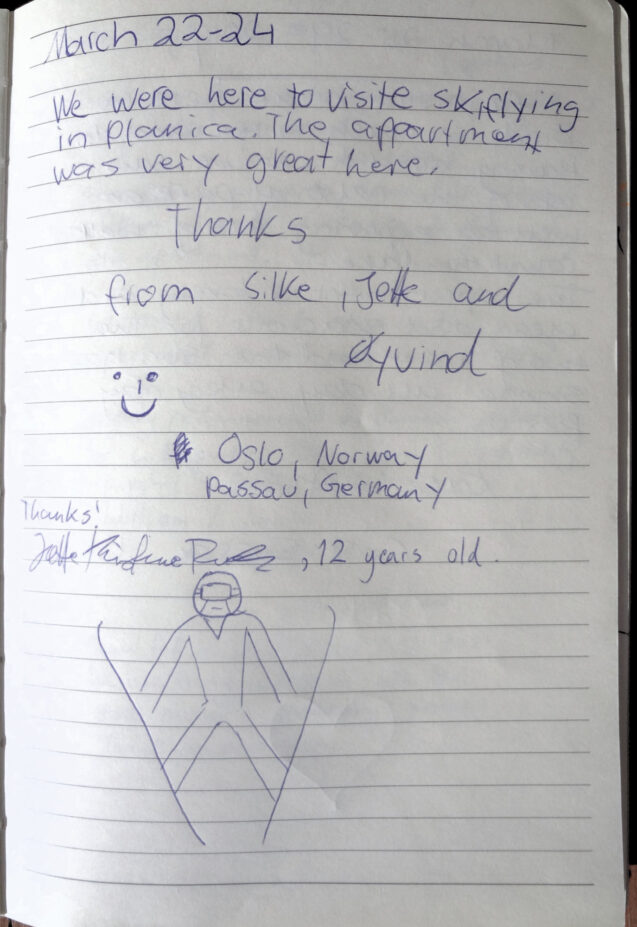 March 22-24
We were here to visite skiflying
in planica. The appartment
was very great here.
Thanks
from Silke, Jette and
Øyvind
Oslo, Norway
passau, Germany
Thanks!
Jette , 12 years old.